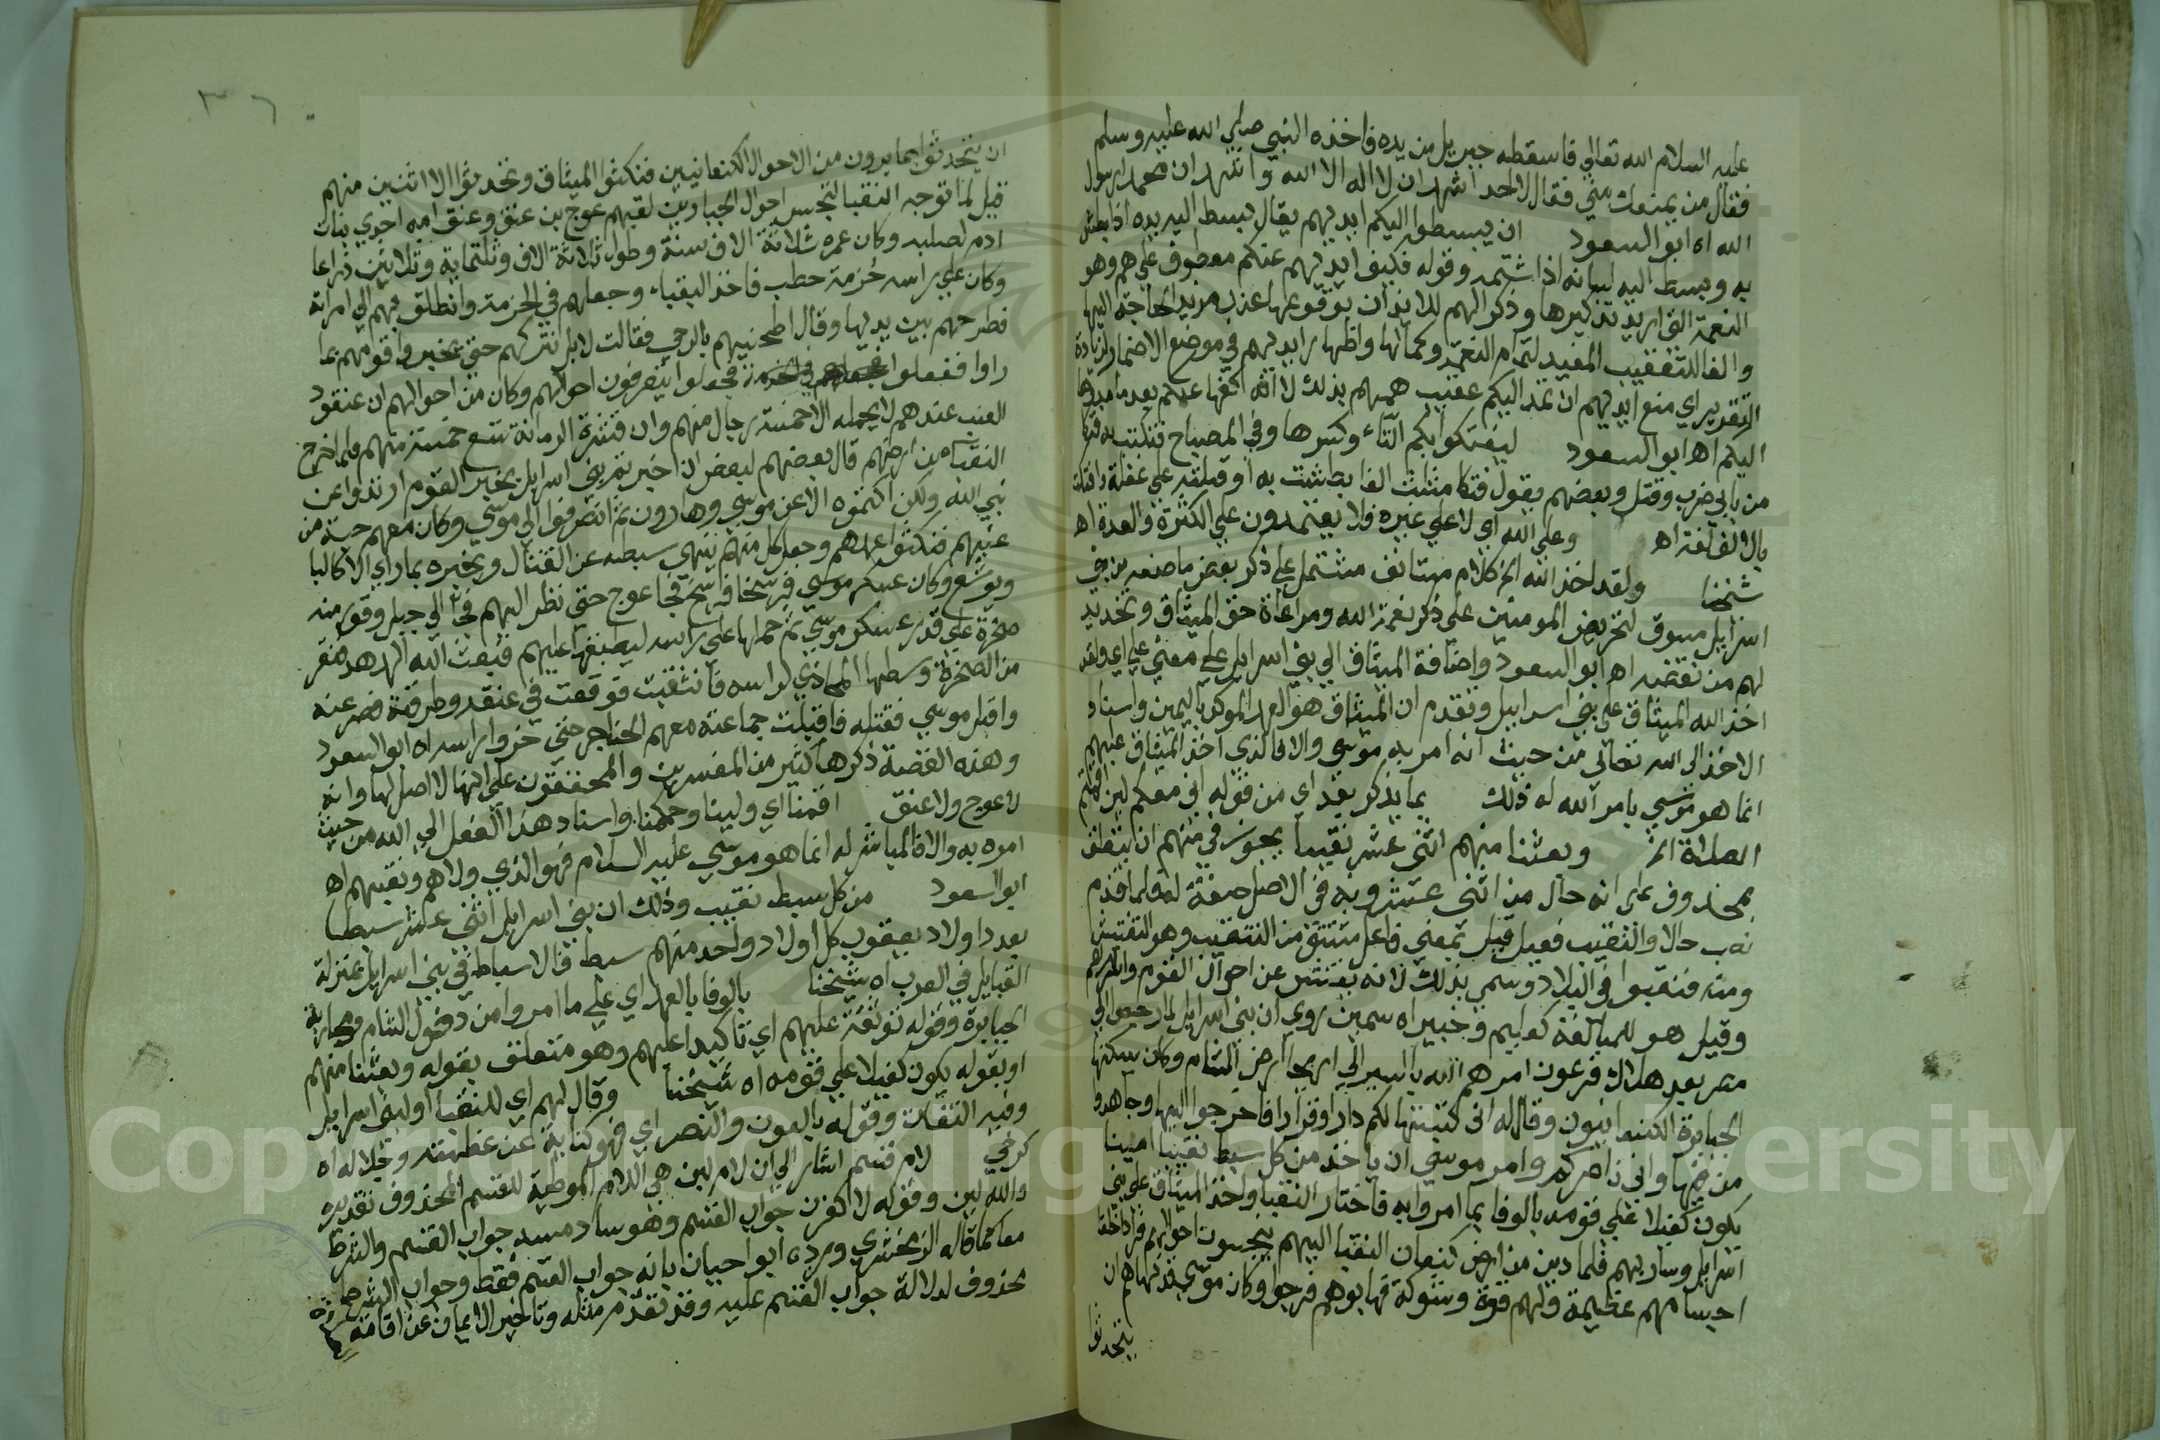 عليه السلام الله تعالى فاسقطه جبريل من يده فاخذه النبي صلى الله عليه وسلم
فقال من يمنعك مني فقال لا احد اشهد ان لا اله الا الله واشهد ان محمدا رسول
الله اه ابو السعود ان يبسطوا اليكم ايديهم يقال بسط اليه يده اذا بطش
به وبسط اليه لسانه اذا شتمه وقوله فكف ايديهم عنكم معطوف على هم وهو
النعمة التي اريد تذكيرها وذكر الهم للايذان بوقوعها عند مزيد الحاجة اليها
والفا للتعقيب المفيد لتمام النعمة وكمالها واظهار ايديهم في موضع الاضمار لزيادة
التقرير اي منع ايديهم ان تمد اليكم عقيب همهم بذلك لا انه كفها عنكم بعد ما مدوها
اليكم اه ابو السعود ليفتكوا بكم التاء وكسرها وفي المصباح فتكت به فتكا
من بابي ضرب وقتل وبعضهم يقول فتكا مثلث الفا بطشت به او قتلته على غفلة وافتكت
بالالف لغة اه وعلى الله اي لا على غيره ولا يعتمدون على الكثرة والعدة اه
شيخنا ولقد اخذ الله الخ كلام مستانف مشتمل على ذكر بعض ما صنعه من بني
اسرايل مسوق لتحريض المومنين على ذكر نعمة الله ومراعاة حق الميثاق وتحذير
لهم من نقضه اه ابو السعود واضافة الميثاق الى بني اسرايل على معنى على اي ولقد
اخذ الله الميثاق على بني اسرايل وتقدم ان الميثاق هو العهد الموكد باليمين واسناد
الاخذ الى الله تعالى من حيث انه امر به موسى والا فالذي اخذ الميثاق عليهم
انما هو موسى بامر الله له ذلك بما يذكر بعد اي من قوله اني معكم لين اقمتم
الصلاة الخ وبعثنا منهم اثني عشر نقيبا يجوز في منهم ان يتعلق
بمحذوف على انه حال من اثني عشر وبه في الاصل صفة له فلما قدم
نصب حالا والنقيب فعيل قيل بمعني فاعل مشتق من التنقيب وهو التفتيش
ومنه فنقبوا في البلاد وسمي بذلك لانه يفتش عن احوال القوم واسرارهم
وقيل هو للمبالغة كعليم وخبير اه سمين روي ان بني اسرايل لما رجعوا الى
مصر بعد هلاك فرعون امرهم الله بالسير الى اريحا ارض الشام وكان يسكنها
الجبابرة الكنعانيون وقال له اني كتبتها لكم دارا وقرارا فاخرجوا اليها وجاهدوا
من فيها واني ناصركم وامر موسى ان ياخذ من كل سبط نقيبا امينا
يكون كفيلا على قومه بالوفا بما امروا به فاختار النقبا واخذ الميثاق على بني
اسرايل وسار بهم فلما دنى من ارض كنعان النقبا اليهم يتجسسون احوالهم فراوا خلقا
اجسامهم عظيمة ولهم قوة وشوكة فهابوهم فرجعوا وكان موسى قد نهاهم ان
يتحدثوا
٣٦
ان يتحدثوا بما يرون من الاحوال الكنعانيين فنكثوا الميثاق وتحدثوا الا اثنين منهم
قيل لما توجه النقبا لتجسس احوال الجبارين لقيهم عوج بن عنق وعنق امه احدي بنات
ادم لصلبه وكان عمره ثلاثة الاف سنة وطوله ثلاثة الاف وثلثماية وثلاثين ذراعا
وكان على راسه حزمة حطب فاخذ النقباء وجعلهم في الحزمة وانطلق بهم الى امراته
فطرحهم بين يديها وقال اطحنيهم بالرحي فقالت لا بل نتركهم حتي يخبروا قومهم بما
راوا ففعلوا فجعلوا يتعرفون احوالهم وكان من احوالهم ان عنقود
العنب عندهم لا يحمله الا خمسة رجال منهم وان قشرة الرمانة تسع خمسة منهم فلما خرج
النقباء من ارضهم قال بعضهم لبعض ان اخبرتم بني اسرايل بخبر القوم ارتدوا عن
نبي الله ولكن اكتموه الا عن موسى وهارون ثم انصرفوا الى موسى وكان معهم حبة من
عنبهم فنكثوا عهدهم وجعل كل منهم ينهى سبطه عن القتال ويخبره بما راي الا كالبا
ويوشع وكان عسكر موسى فرسخا في فرسخ فجا عوج حتى نظر اليهم فجا الى جبل وقور منه
صخرة على قدر عسكر موسى ثم حملها على راسه ليطبقها عليهم فبعث الله الهدهد فنقر
من الصخرة وسطها المحاذي لراسه فانثقبت فوقعت في عنقه وطوقته فصرعته
واقبل موسى فقتله فاقبلت جماعة معهم الخناجر حتى حزوا راسه اه ابو السعود
وهذه القصة ذكرها كثير من المفسرين والمحققون على انها لا اصل لها وانه
لا عوج ولا عنق اقمنا اي ولينا وحكمنا واسناد هذا الفعل الى الله من حيث
امره به والا فالمباشر له انما هو موسى عليه السلام فهو الذي ولاهم ونقبهم اه
ابو السعود من كل سبط نقيب وذلك ان بني اسرايل اثني عشر سبطا
بعدد اولاد يعقوب كل اولاد واحد منهم سبط فالاسباط في بني اسرايل بمنزلة
القبايل في العرب اه شيخنا بالوفا بالعهد اي على ما امروا من دخول الشام ومحاربة
الجبابرة وقوله توثقة عليهم اي تاكيدا عليهم وهو متعلق بقوله وبعثنا منهم
او بقوله يكون كفيلا على قومه اه شيخنا وقال لهم اي للنقبا او لبني اسرايل
وفيه التفات وقوله بالعون والنصر اي فهو كناية عن عظمته وجلاله اه
كرخي لام قسم اشار الى ان لام لين هي اللام الموطية للقسم المحذوف تقديره
والله لين وقوله لاكفرن جواب القسم وهو ساد مسد جواب القسم والشرط
معا كما قاله الزمخشري ورده ابو حيان بانه جواب القسم فقط وجواب الشرط
محذوف لدلالة جواب القسم عليه وقد تقدم مثله وتاخير الايمان عن اقامة
Copyright © King Saud University